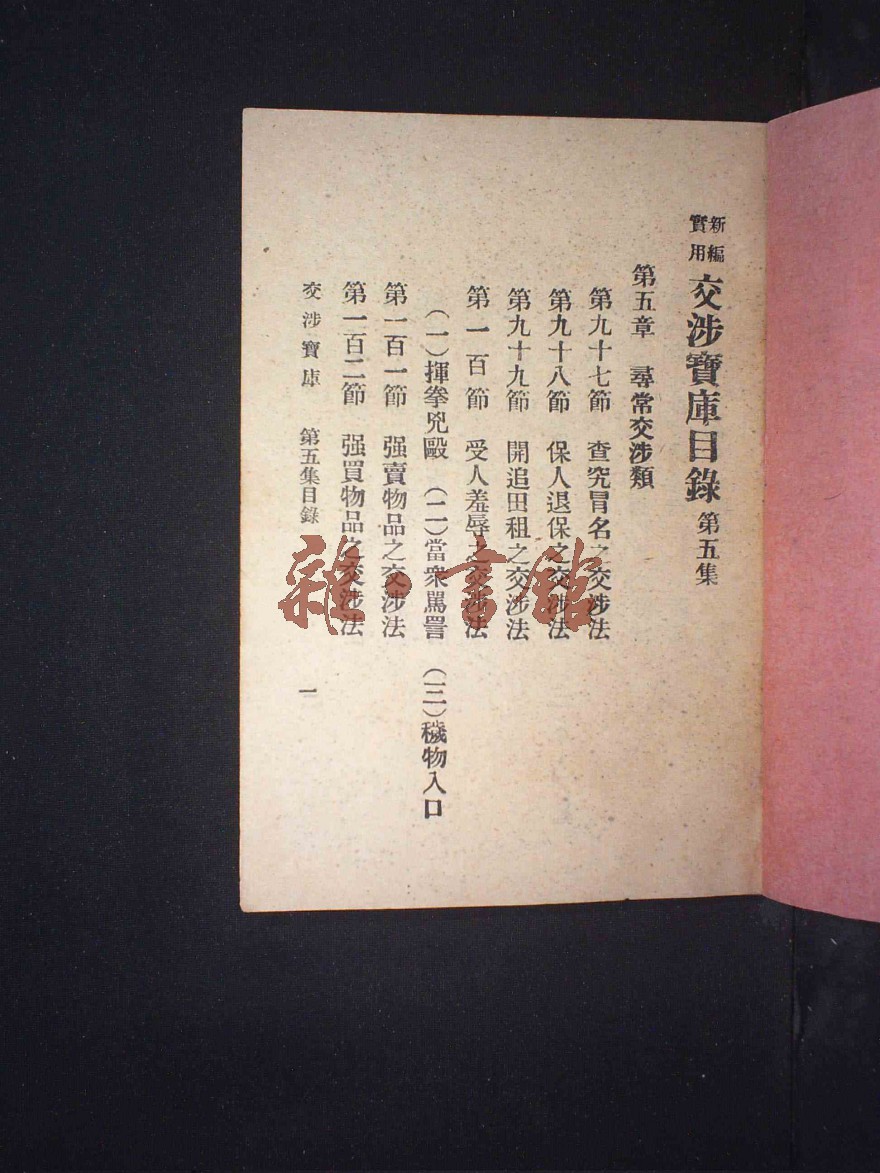 新編實用 交涉寶庫目錄 第五集
第五章 尋常交涉類
第九十七節 查究冒名之交涉法
第九十八節 保人退保之交涉法
第九十九節 開追田租之交涉法
第一百節 受人羞辱之交涉法
（一）揮拳兇毆 （二）當衆罵詈 （三）穢物入口
第一百一節 强賣物品之交涉法
第一百二節 强買物品之交涉法
交涉寶庫 第五集目錄 一
雜·書館